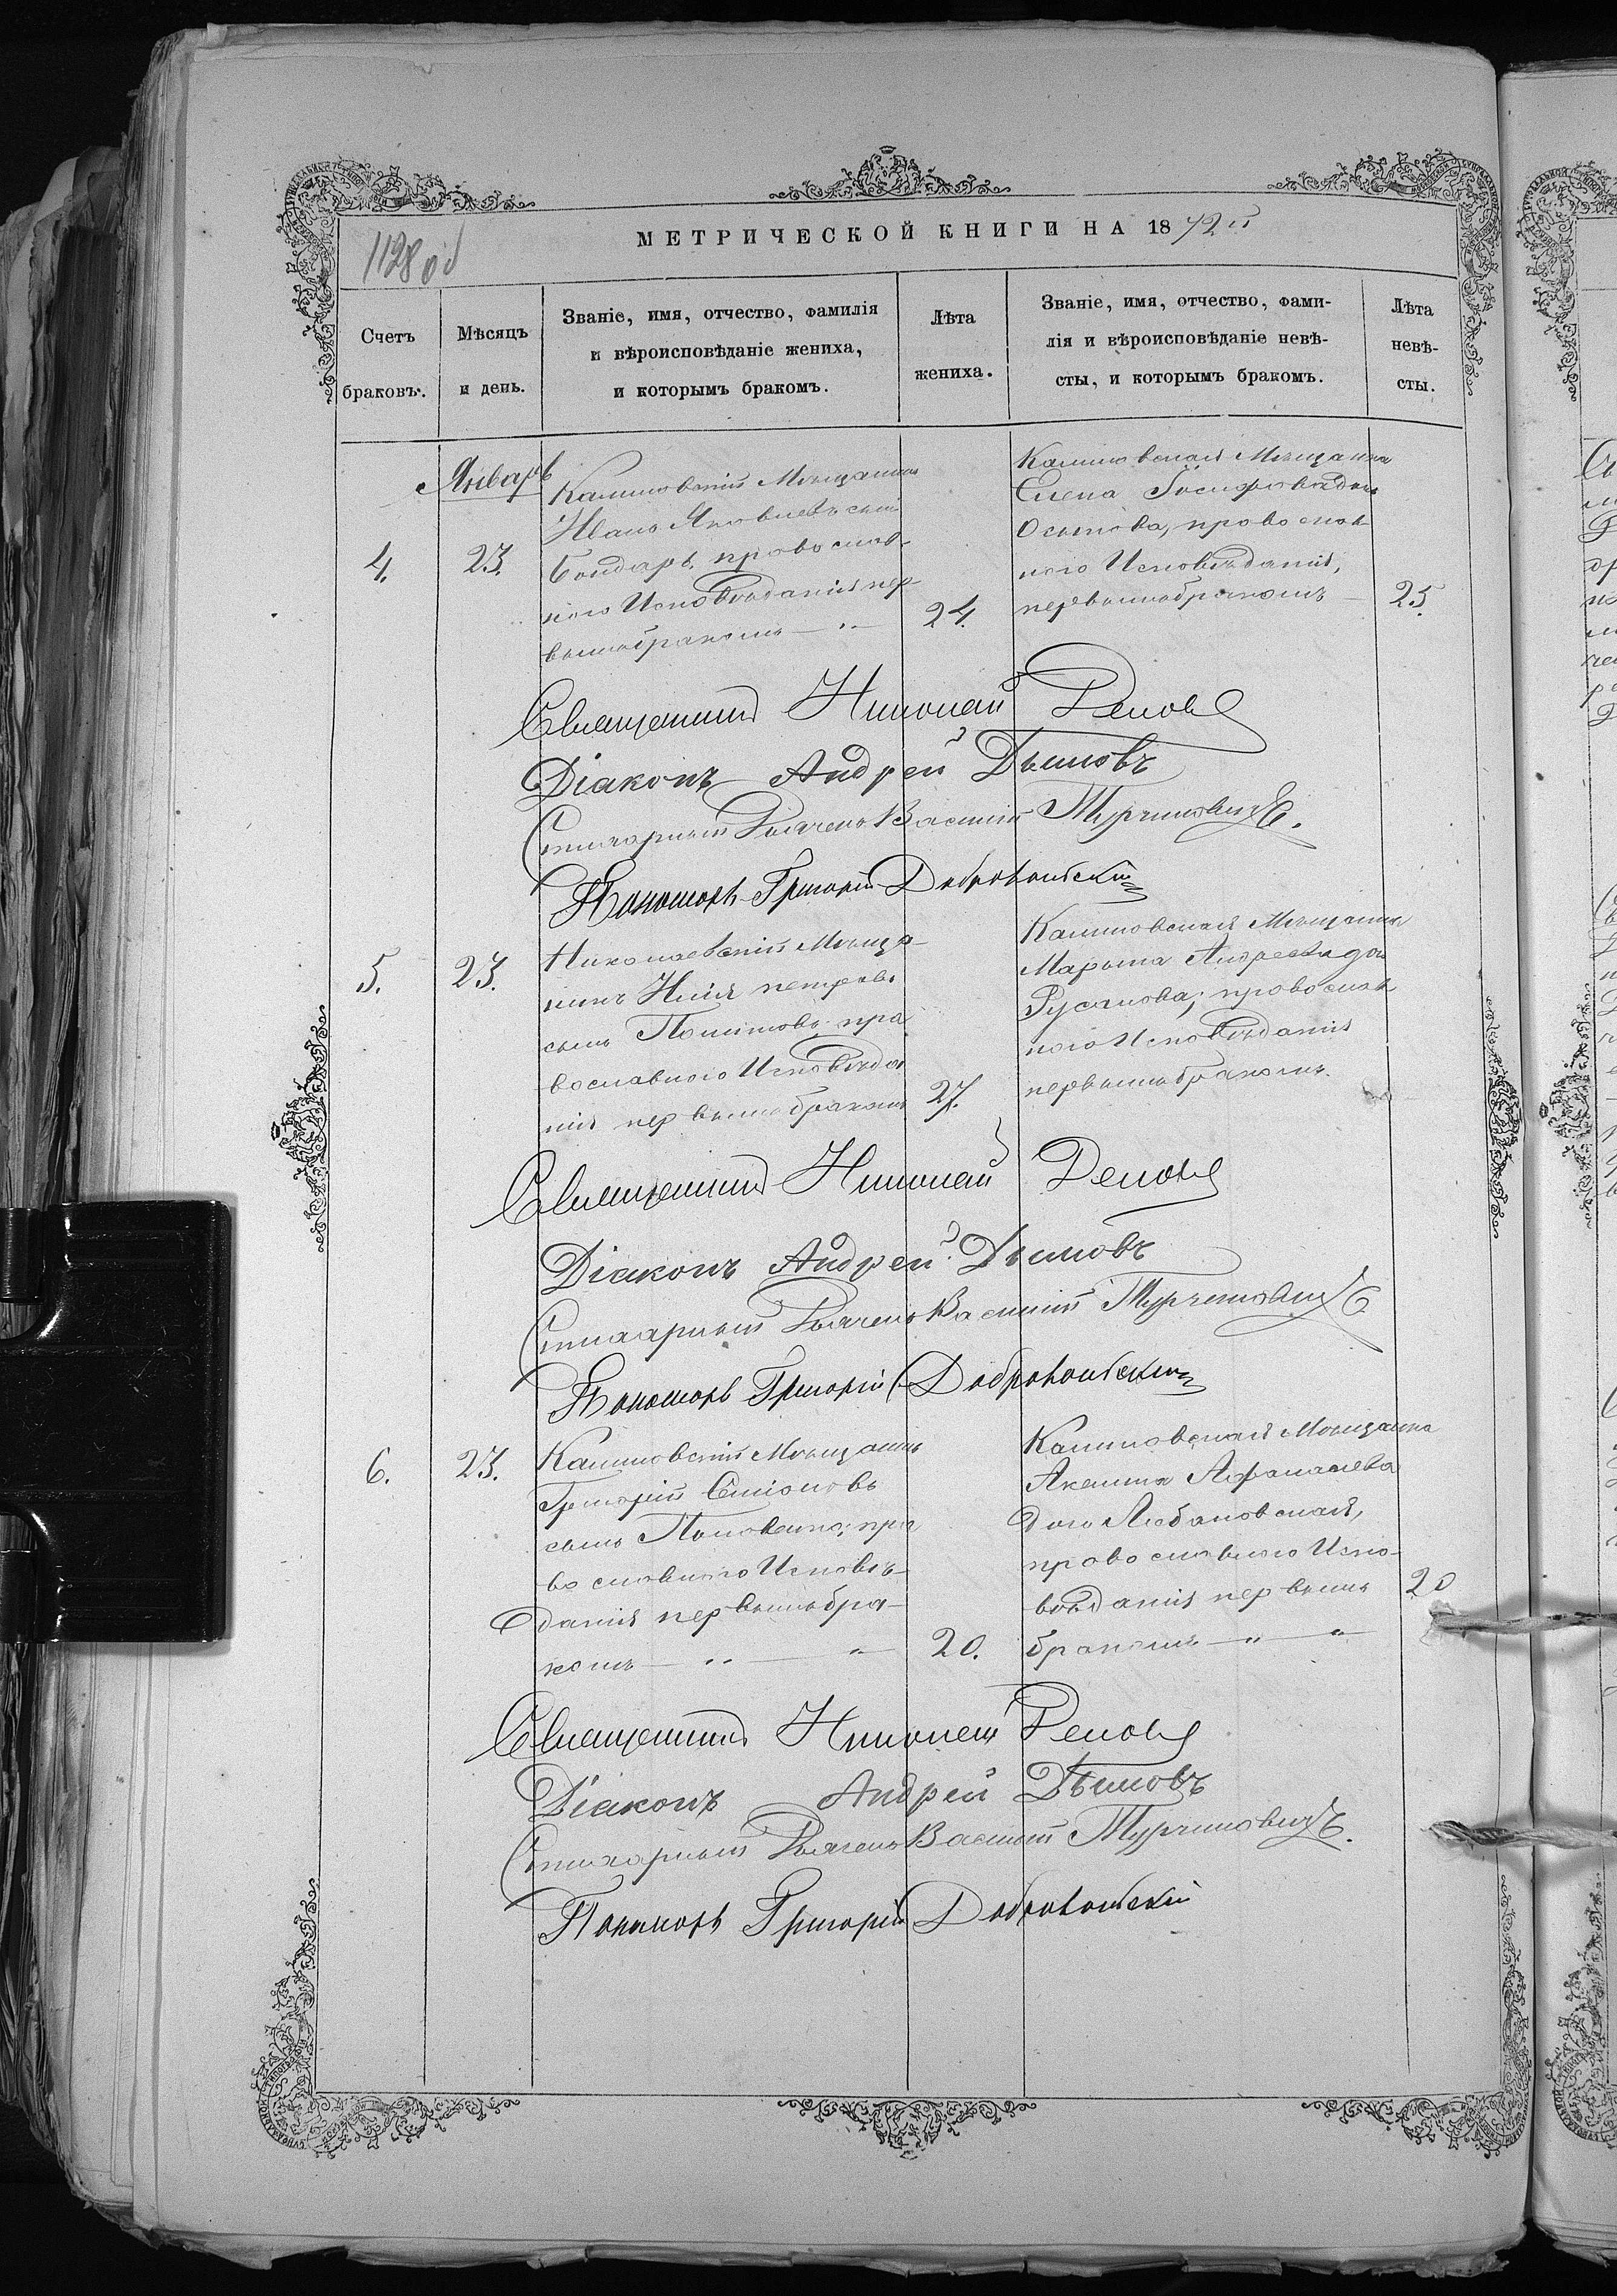 1128 об
МЕТРИЧЕСКОЙ КНИГИ НА 1872й
Счетъ браковъ.
Мѣсяцъ и день.
Званіе, имя, отчество, фамилія
и вѣроисповѣданіе жениха,
и которымъ бракомъ.
Лѣта жениха.
Званіе, имя, отчество, фами-
лія и вѣроисповѣданіе невѣ-
сты, и которымъ бракомъ.
Лѣта невѣ-
сты.
Январь
4.
23.
Мѣщанинъ
Иванъ Яковлевъ сынъ
Бондарь, православ-
ного Исповѣданія пер-
вымъ бракомъ
24.
Мѣщанка
Елена Іосифова дочь
Осипова, православ-
ного Исповѣданія,
первымъ бракомъ
25.
Священникъ Николай
Діаконъ Андрей Дымовъ
Стихарный Василій
Пономарь Григорій Добровольскій
5.
23.
Николаевскій Мѣща-
нинъ Илія Петровъ
сынъ пра
вославного Исповѣда
нія первымъ бракомъ
27.
Мѣщанка
Андреева дочь
Русанова, православ
ного Исповѣданія
первымъ бракомъ.
Священникъ Николай
Діаконъ Андрей Дымовъ
Стихарный Василій
Пономарь Григорій Добровольскій
6.
23.
Мѣщанинъ
Григорій Симіоновъ
сынъ пра
вославного Исповѣ-
данія первымъ бра-
комъ
20.
Мѣщанка
Акелина Афанасіева
дочь Лобановская,
православного Испо-
вѣданія первымъ
бракомъ
20
Священникъ Николай
Діаконъ Андрей Дымовъ
Стихарный Василій
Пономарь Григорій Добровольскій